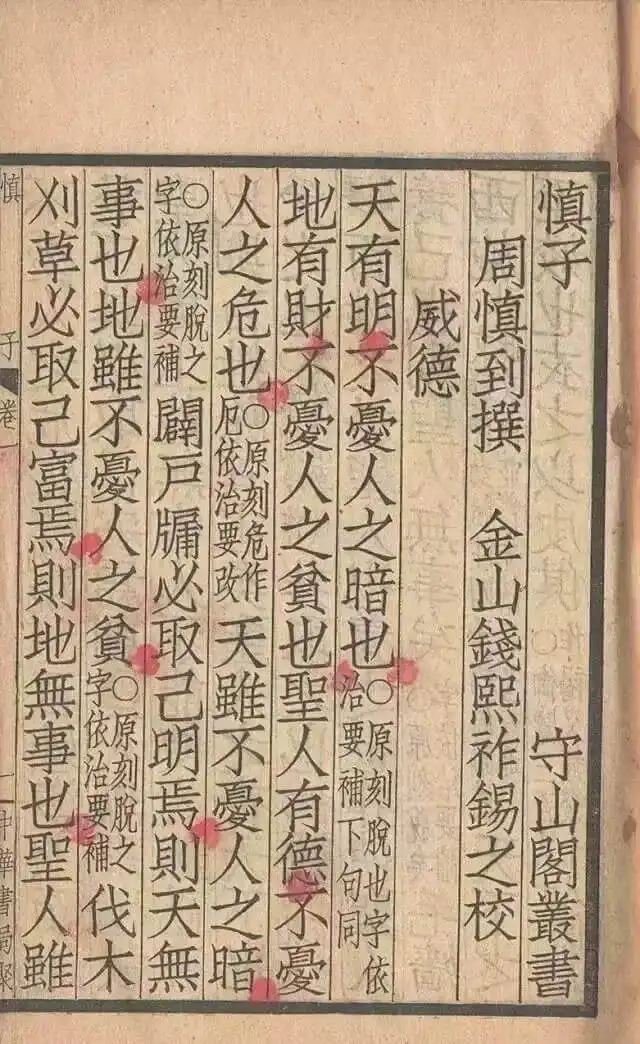 慎子 守山閣叢書
周慎到撰 金山錢熙祚錫之校
威德
天有明不憂人之暗也○原刻脫也字依治要補下句同
地有財不憂人之貧也聖人有德不憂
人之危也○原刻危作厄依治要改天雖不憂人之暗
闢戶牖必取己明焉則天無
事也地雖不憂人之貧○原刻脫之字依治要補伐木
刈草必取己富焉則地無事也聖人雖
○原刻脫之字依治要補
慎子 卷一 一 中華書局聚